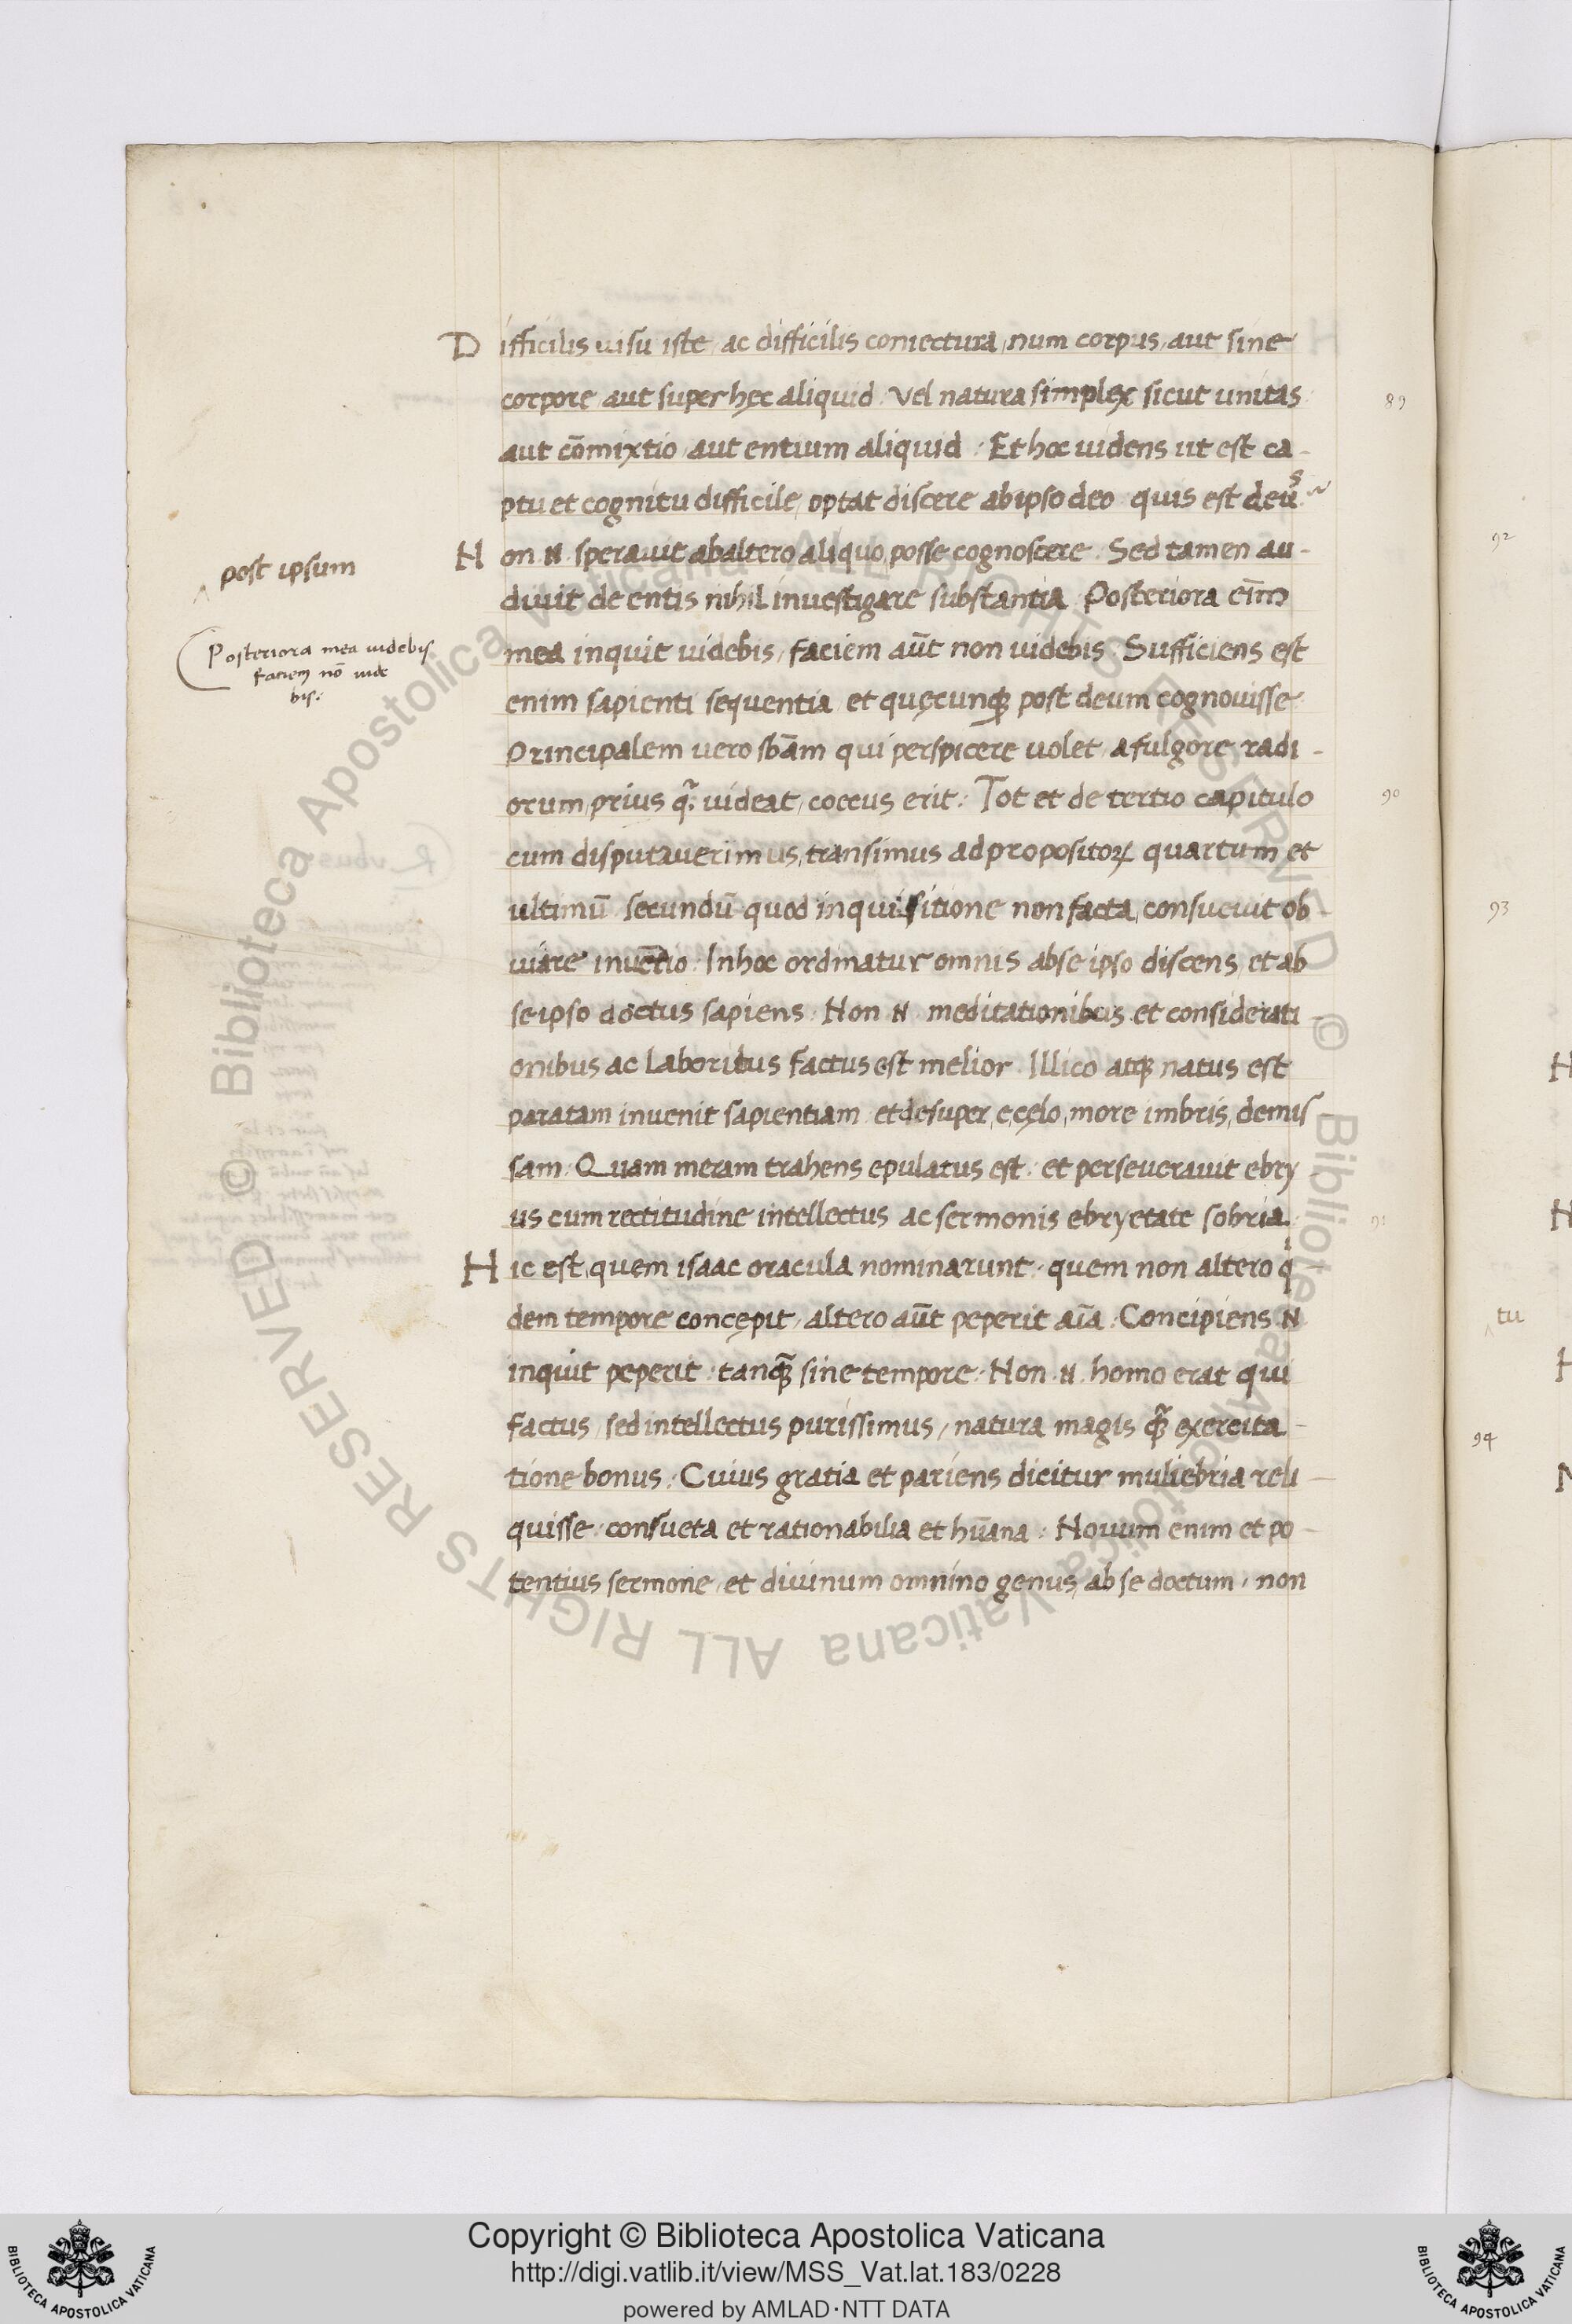 Difficilis uisu iste, ac difficilis coniectura, num corpus, aut sine
corpore aut super hęc aliquid. Vel natura simplex sicut unitas
89
aut cōmixtio, aut entium aliquid. Et hoc uidens ut est ca-
ptu et cognitu difficile, optat discere ab ipso deo quis est deus.
Non .N. sperauit ab altero aliquo posse cognoscere. Sed tamen au-
post ipsum
diuit de entis nihil inuestigare substantia. Posteriora eīm
mea inquit uidebis, faciem aūt non uidebis. Sufficiens est
Posteriora mea uidebis
faciem nō uide
bis:
enim sapienti sequentia et quęcunq; post deum cognouisse
Principalem uero sbām qui perspicere uolet, a fulgore radi-
orum, prius q̃; uideat, coecus erit: Tot et de tertio capitulo
90
cum disputauerimus, transimus ad propositoꝝ quartum et
ultimū. secundū quod inquisitione non facta, consueuit ob-
uiare inuētio. In hoc ordinatur omnis ab se ipso discens, et ab
se ipso doctus sapiens. Non .N. meditationibus et considerati-
onibus ac laboribus factus est melior. Illico atq; natus est
paratam inuenit sapientiam et desuper, e cęlo, more imbris, demis-
sam. Quam meram trahens epulatus est: et perseuerauit ebry
us cum rectitudine intellectus ac sermonis ebryetate sobria.
91
Hic est, quem isaac oracula nominarunt, quem non altero qi
dem tempore concępit, altero aūt peperit aīa. Concipiens .N.
inquit peperit: tanq̃; sine tempore. Non .N. homo erat qui
factus, sed intellectus purissimus, natura magis q̃; exercita-
tione bonus. Cuius gratia et pariens dicitur muliebria reli-
quisse: consueta et rationabilia et hūana: Nouum enim et po-
tentius sermone, et diuinum omnino genus, ab se doctum, non
92
93
H
H
tu
94
Copyright © Biblioteca Apostolica Vaticana
http://digi.vatlib.it/view/MSS_Vat.lat.183/0228
powered by AMLAD·NTT DATA
BIBLIOTECA APOSTOLICA VATICANA
BIBLIOTECA APOSTOLICA VATICANA
© Biblioteca Apostolica Vaticana ALL RIGHTS RESERVED
© Biblioteca Apostolica Vaticana ALL RIGHTS RESERVED